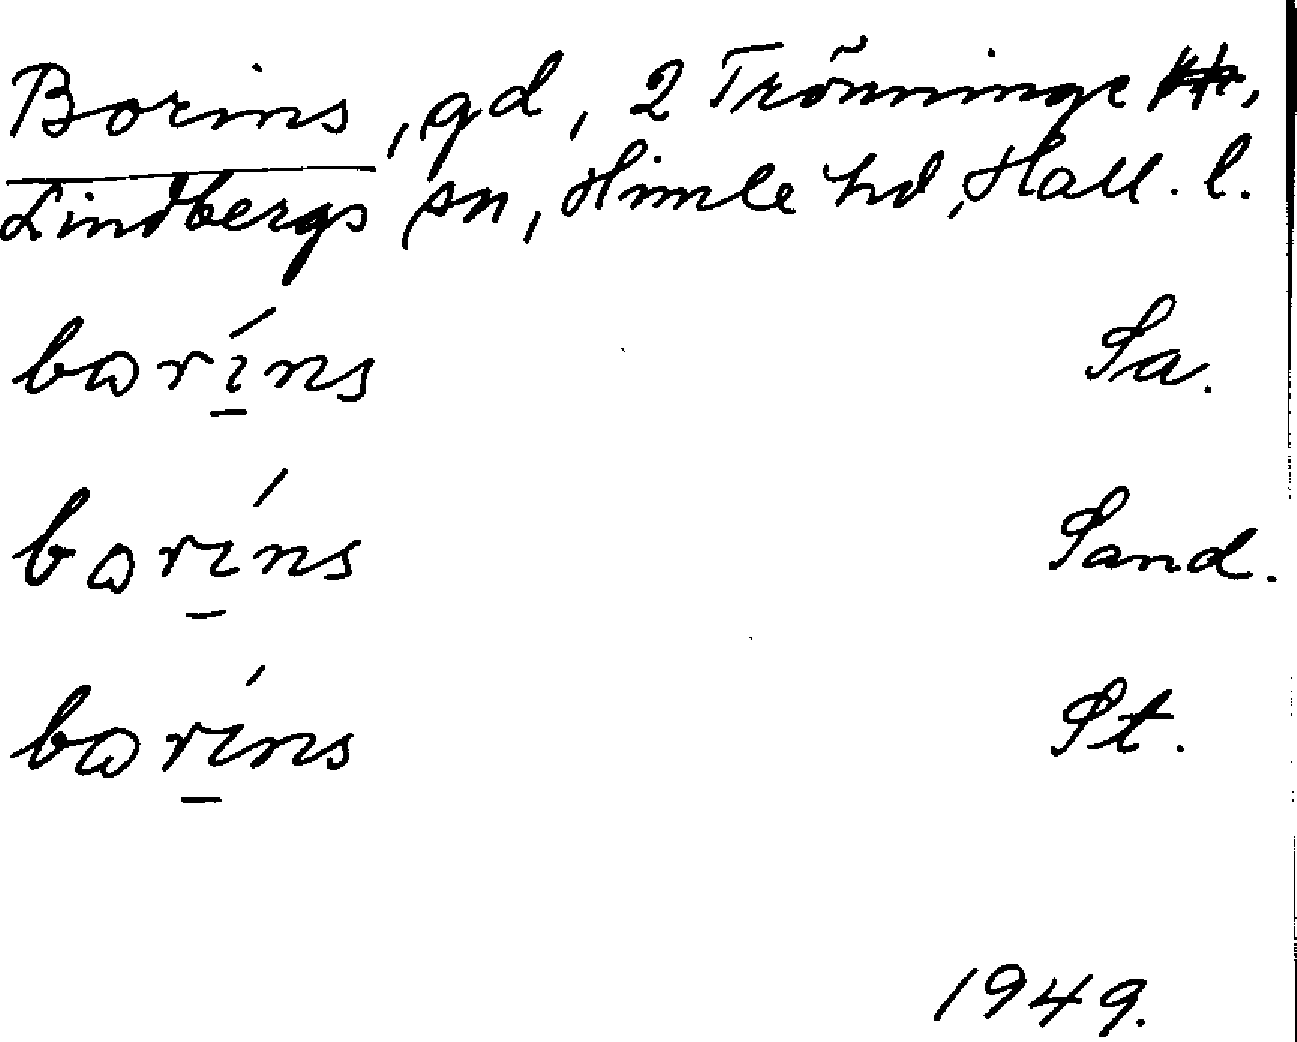 Borins, gd, 2 Trönninge
Lindbergs sn, Himle hd, Hall. l.
bωrí̱ns Sa.
bωrí̱ns Sand.
bωrí̱ns St.
1949.